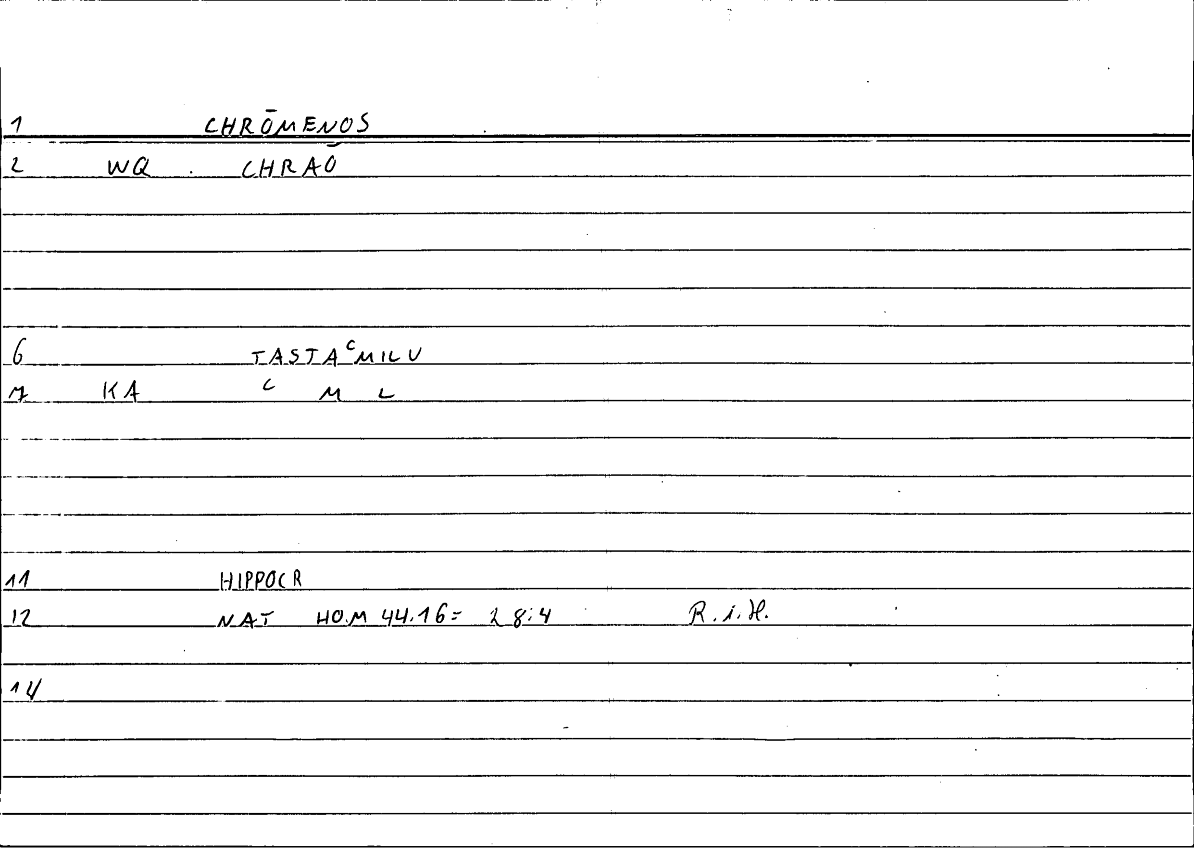 1 CHRŌMENOS
2 WQ . CHRAŌ
6 TASTAᶜMILU
7 KA ᶜ M L
11 HIPPOCR
12 NAT HOM 44.16= 28:4 R.i.H.
14